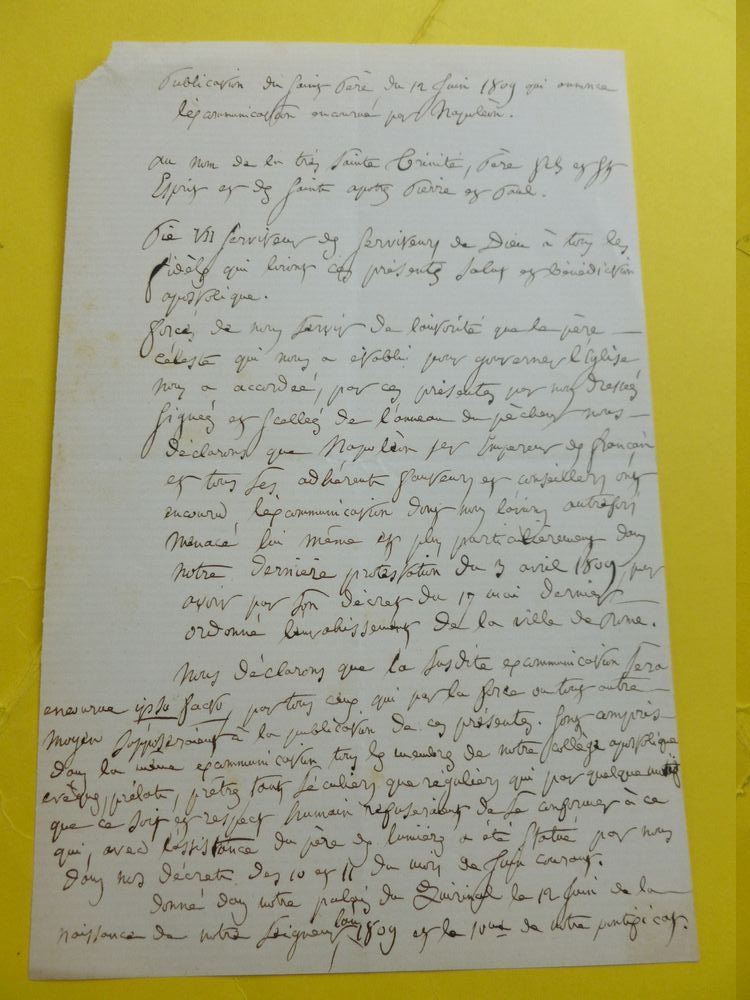 Publication du Saint Père du 12 Juin 1809 qui annonce
l'excommunication encourue par Napoléon.
au nom de la très Sainte Trinité, Père fils et St
Esprit et des Saints apotres Pierre et Paul.
Pie VII Serviteur des Serviteurs de Dieu à tous les
fidèles qui liront ces présentes salut et bénédiction
apostolique.
forcés de nous servir de l'autorité que le père
céleste qui nous a établi pour gouverner l'Eglise
nous a accordée, par ces présentes par nous dressées
signées et scellées de l'anneau du pècheur nous
déclarons que Napoléon 1er Empereur des français
et tous ses adhérents fauteurs et conseillers ont
encouru l'excommunication dont nous l'avions autrefois
menacé lui même et plus particulièrement dans
notre dernière protestation du 3 avril 1809, par
avoir par son décret du 17 mai dernier
ordonné l'envahissement de la ville de Rome.
Nous déclarons que la susdite excommunication sera
encourue ipso facto, par tous ceux qui par la force ou tout autre
moyen s'opposeraient à la publication de ces présentes. Sont compris
dans la même excommunication tous les membres de notre collège apostolique
evêques, prélats, prêtres tant séculiers que réguliers qui par quelque motif
que ce soit et respect humain refuseraient de se conformer à ce
qui avec l'assistance du père des lumières a été statué par nous
dans nos décrets des 10 et 11 du mois de Juin courant.
donné dans notre palais du Quirinal le 12 Juin de la
naissance de notre Seigneur l'an 1809 et le 10me de notre pontificat.